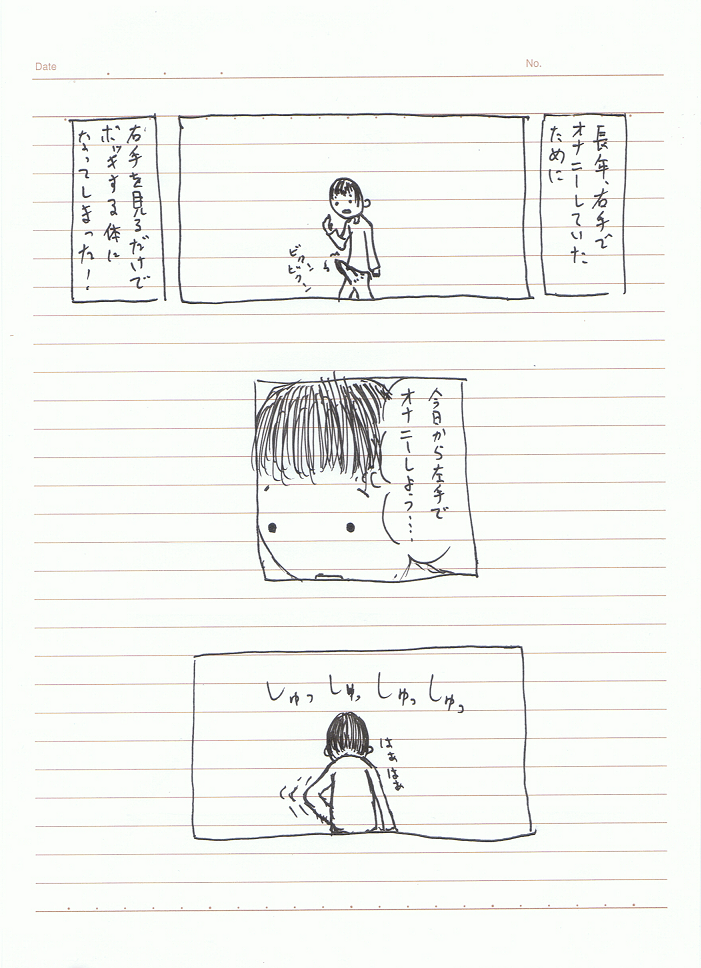 Date
No.
長年、右手で
オナニーしていた
ために
ビクン
ビクン
右手を見るだけで
ボッキする体に
なってしまった！
今日から左手で
オナニーしよう・・・・
しゅっ しゅっ しゅっ しゅっ
はぁはぁ